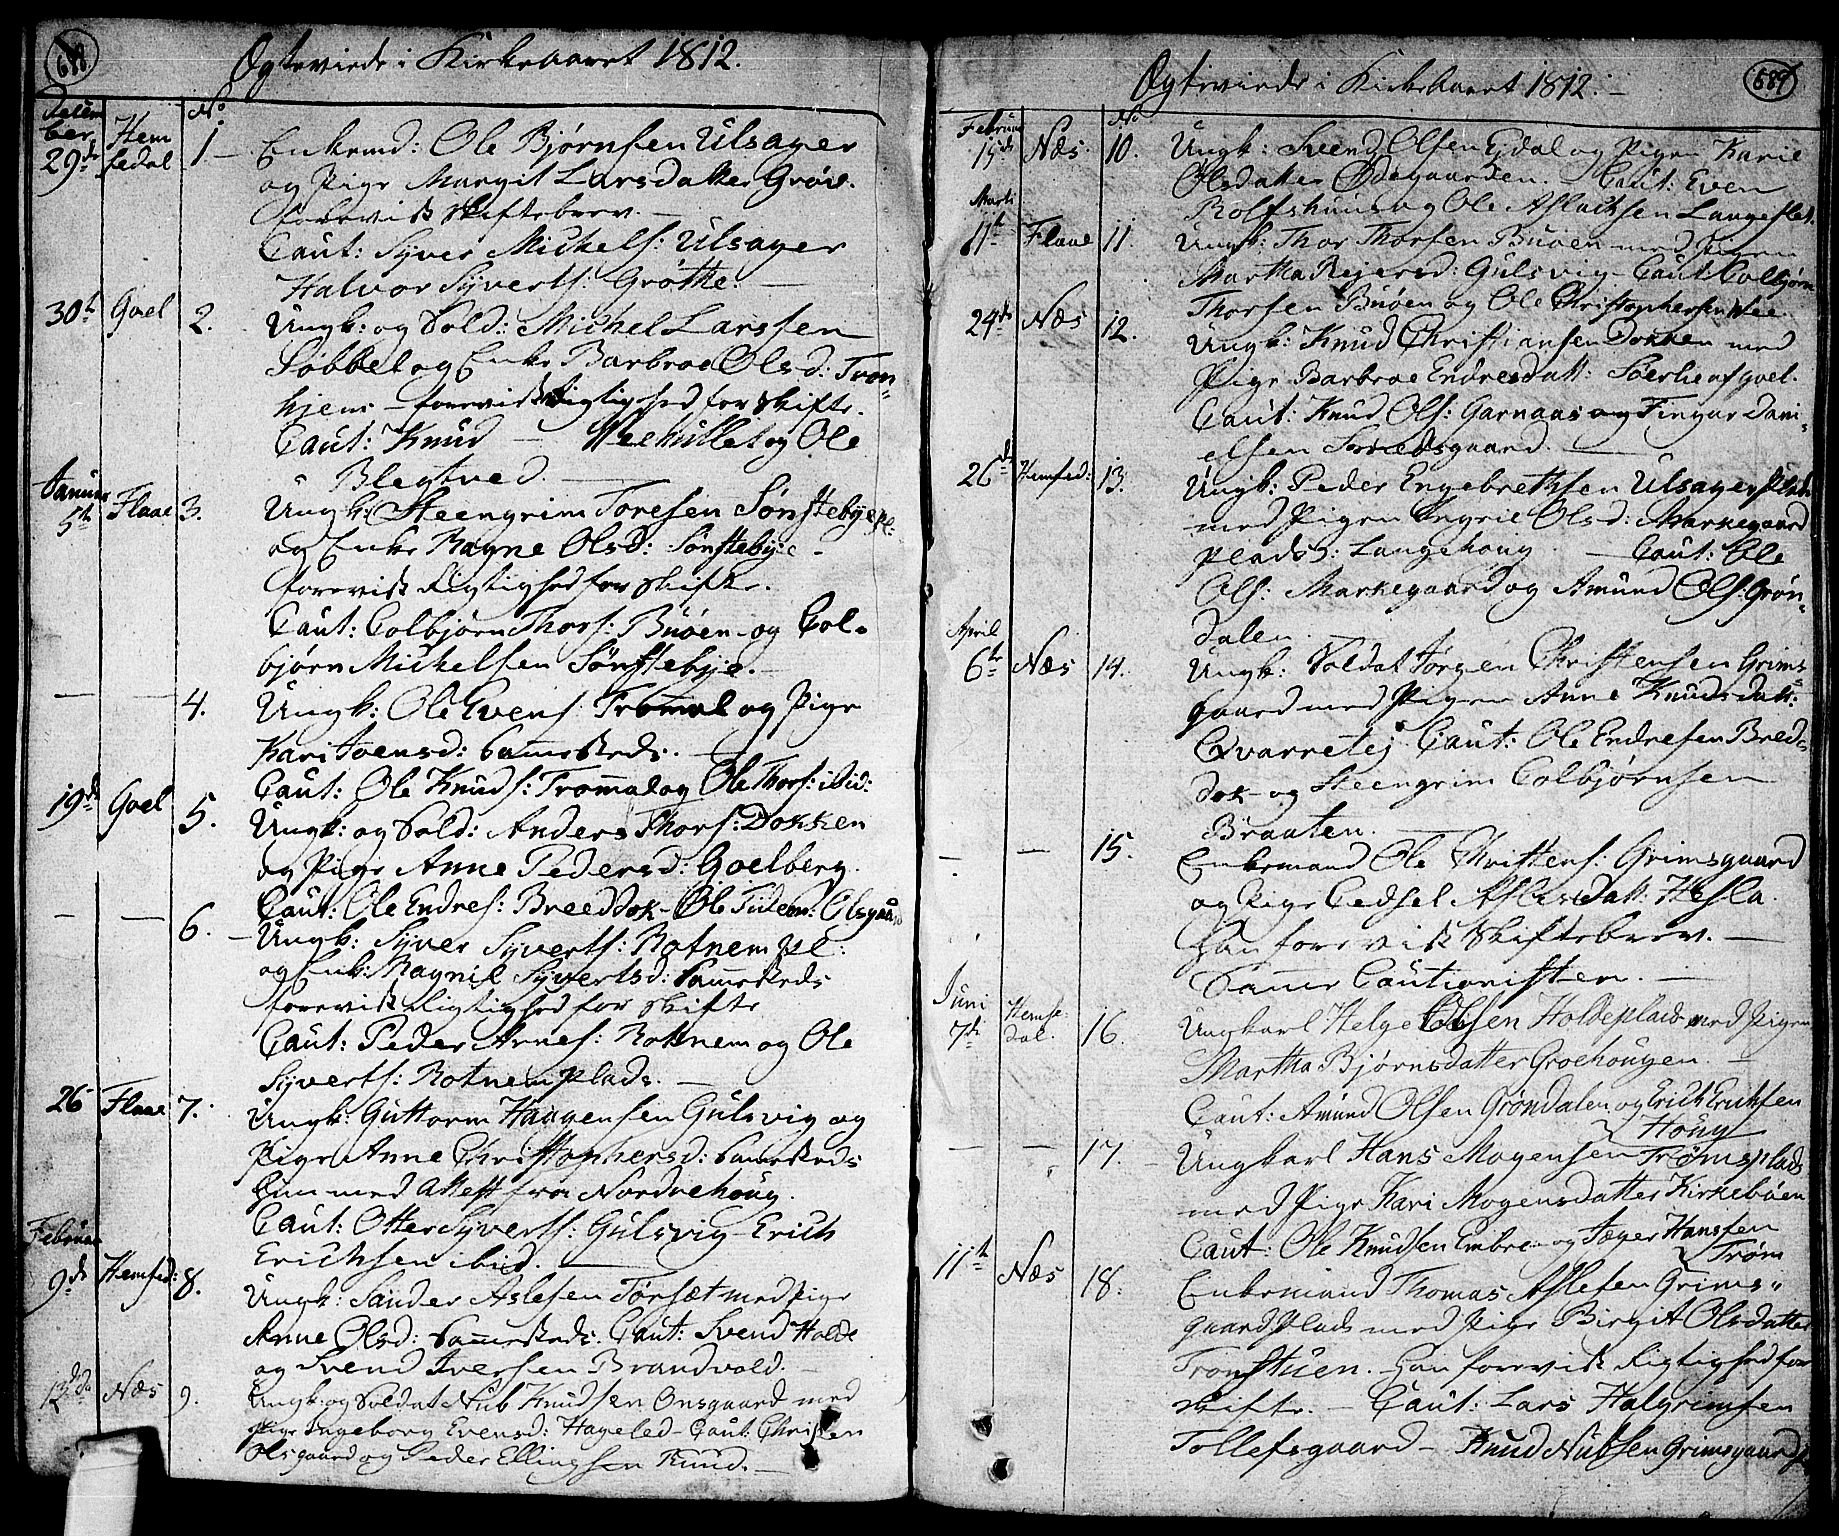 688
Ægteviede i Kirkeaaret 1812.
Decem
ber
29de Hem
sedal No 1 Enkemd: Ole Bjørnsen Ulsager
og Pige Margit Larsdatter Grøie.
foreviist Skiftebrev.
Caut: Syver Michels: Ulsager
Halvor Syverts: Grøthe.
30te Goel 2. Ungk: og Sold: Michel Larssen
Løbbel og Enke Barbroe Olsd: Tron-
hjem - foreviist Rigtighed for Skifte.
Caut: Knud - Meehullet og Ole
Blegtved.
Januar
5te Flaae 3. Ungk: Steengrim Toresen Sønstebye pl:
og Enke Ragne Olsd: Sønstebye -
foreviist Rigtighed for Skifte.
Caut: Colbjørn Thors: Buøen og Col-
bjørn Michelsen Sønstebye.
— — 4. Ungk: Ole Evens: Trommal og Pige
Kari Joensd: sammesteds.
Caut: Ole Knuds: Trommal og Ole Thors: ibid:
19de Goel 5. Ungk: og Sold: Anders Thors: Dokken
og Pige Anne Pedersd: Goelberg.
Caut: Ole Endres: Breeddok - Ole Tidem: Olsgaard
— — 6. Ungk: Syver Syverts: Rotnem pl:
og Enk: Magnil Syvertsd: sammesteds
foreviist Rigtighed for Skifte
Caut: Peder Arnes: Rotnem og Ole
Syverts: Rotnem plads.
26 Flaae 7. Ungk: Guttorm Haagensen Gulsvig og
Pige Anne Christophersd: sammesteds
hun med Attest fra Nordrehoug.
Caut: Otter Syverts: Gulsvig - Erich
Erichsen ibid.
Februar
9de Hemsed: 8. Ungk: Sander Aslesen Tørset med Pige
Anne Olsd: sammesteds. Caut: Svend Holde
og Svend Iversen Brandvold.
13de Næs 9. Ungk: og Soldat Nub Knudsen Onsgaard med
Pige Ingeborg Evensd: Hagaled - Caut: Christen
Olsgaard og Peder Ellingsen Rund.
689
Ægteviede i Kirkeaaret 1812.
Februar
15de Næs. No 10. Ungk: Svend Olsen Ejdal og Pigen Karie
Olsdatter Ødegaarden. - Caut: Even
Rolfshuus og Ole Aslachsen Langeslet.
Marti
11te Flaae 11. Ungk: Thor Thorsen Buøen med Pigen
Martha Rejersd: Gulsvig - Caut: Colbjørn
Thorsen Buøen og Ole Christophersen Wee.
24de Næs 12. Ungk: Knud Christiansen Dokken med
Pige Barbroe Endresdatt: Søerlie af Goel.
Caut: Knud Ols: Garnaas og Fingar Dani-
elsen
26de Hemsed: 13. Ungk: Peder Engebrethsen Ulsager plads
med Pigen Ingrie Olsd: Markegaard
Plads: Langehoug. - Caut: Ole
Ols: Markegaard og Amund Ols: Grøn-
dalen.
April
6te Næs 14. Ungk: Soldat Jørgen Christensen Grims-
gaard med Pigen Anne Knudsdatt:
Qvarretej. Caut: Ole Endresen Breed-
dok og Steengrim Colbjørnsen
Braaten.
— — 15. Enkemand Ole Christens: Grimsgaard
og Pige Gedsel Aslesdatt: Hesla.
Han foreviist Skiftebrev.
Samme Cautionisten.
Juni
7de Hemse-
dal. 16. Ungkarl Helge Olsen Holdeplads med Pigen
Martha Bjørnsdatter Groehougen.
Caut: Amund Olsen Grøndalen og Erich Erichsen
Houg
— — 17. Ungkarl Hans Mogensen Trømsplads
med Pige Kari Mogensdatter Kirkebøen
Caut: Ole Knudsen Embre og Jæger Hansen
Trøm
11te Næs 18. Enkemand Thomas Aslesen Grims-
gaard Plads med Pige Birgit Olsdatter
Tronstuen. Han foreviist Rigtighed for
Skifte. - Caut: Lars Halgrimsen
Tollefsgaard - Knud Nubsen Grimsgaard